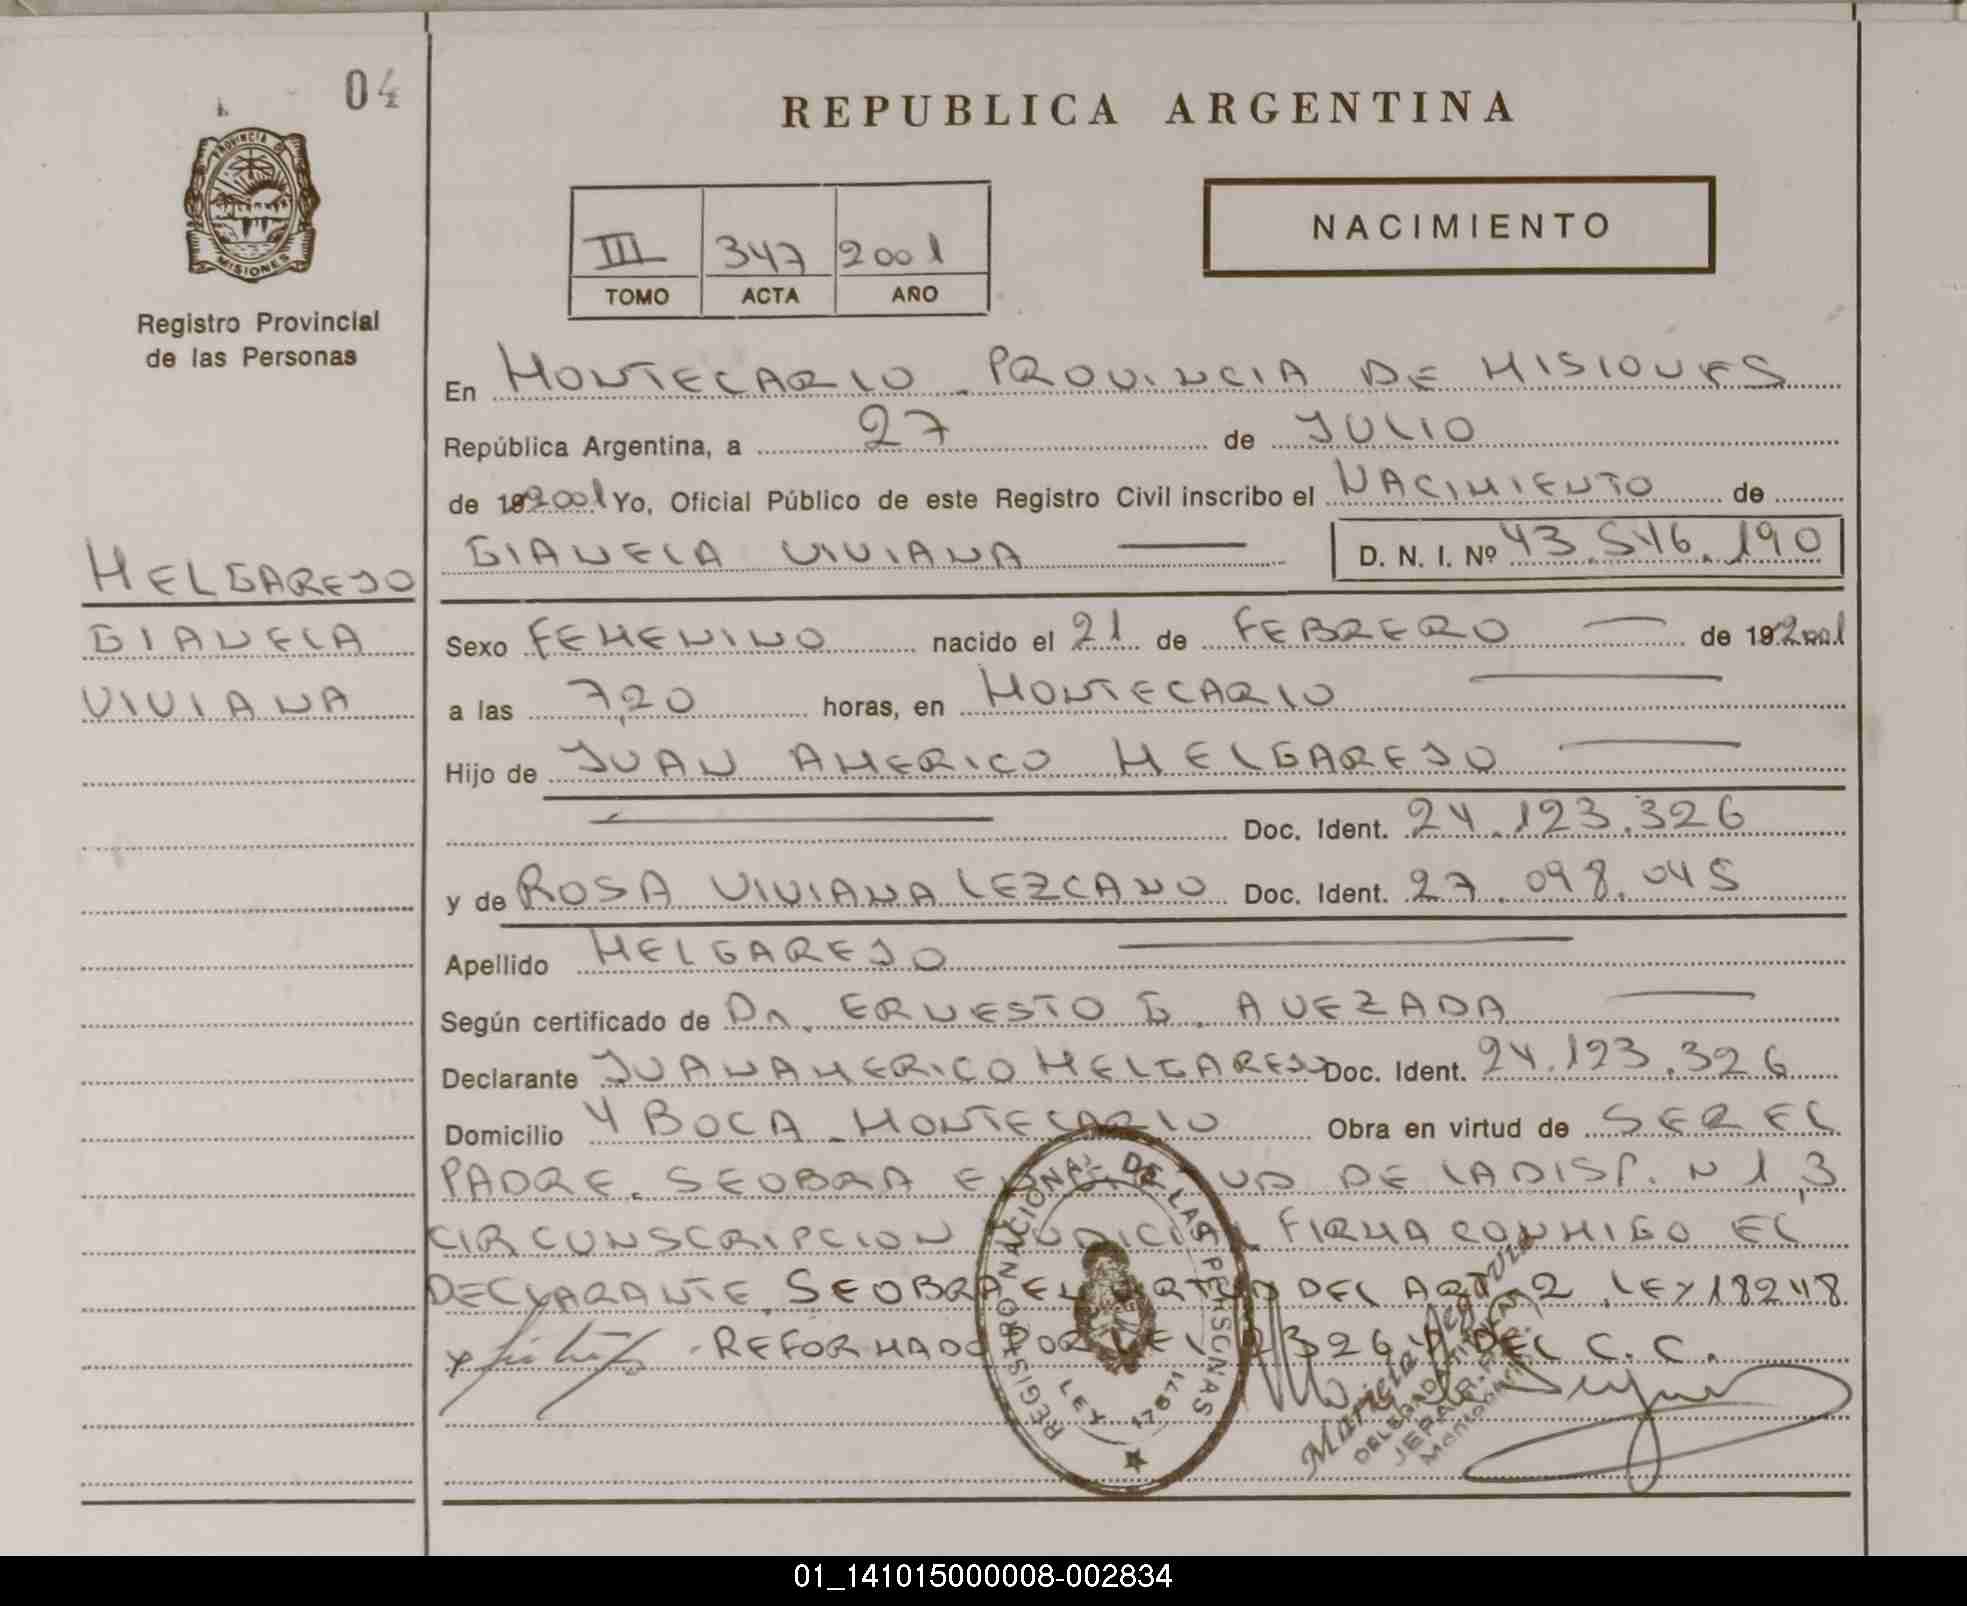 04
PROVINCIA DE
MISIONES
Registro Provincial
de las Personas
REPUBLICA ARGENTINA
III 347 2001
TOMO ACTA AÑO
NACIMIENTO
En MONTECARLO - PROVINCIA DE MISIONES
República Argentina, a 27 de JULIO
de 192001 Yo, Oficial Público de este Registro Civil inscribo el NACIMIENTO de
GIANELA VIVIANA D. N. I. Nº 43.546.190
MELGAREJO
GIANELA
VIVIANA
Sexo FEMENINO nacido el 21 de FEBRERO de 192001
a las 7,20 horas, en MONTECARLO
Hijo de JUAN AMERICO MELGAREJO
Doc. Ident. 24.123.326
y de ROSA VIVIANA LEZCANO Doc. Ident. 27.098.045
Apellido MELGAREJO
Según certificado de Dr. ERNESTO G. AVEZADA
Declarante JUAN AMERICO MELGAREJO Doc. Ident. 24.123.326
Domicilio 4 BOCA - MONTECARLO Obra en virtud de SER EL
PADRE. SE OBRA EN DE LA DISP. N 1,3
CIRCUNSCRIPCION JUDICIAL FIRMA CONMIGO EL
DECLARANTE. SE OBRA EN VIRTUD DEL ART 2 LEY 18248
REFORMADO POR LEY DEL C.C.
REGISTRO NACIONAL DE LAS PERSONAS
LEY 17671
01_141015000008-002834